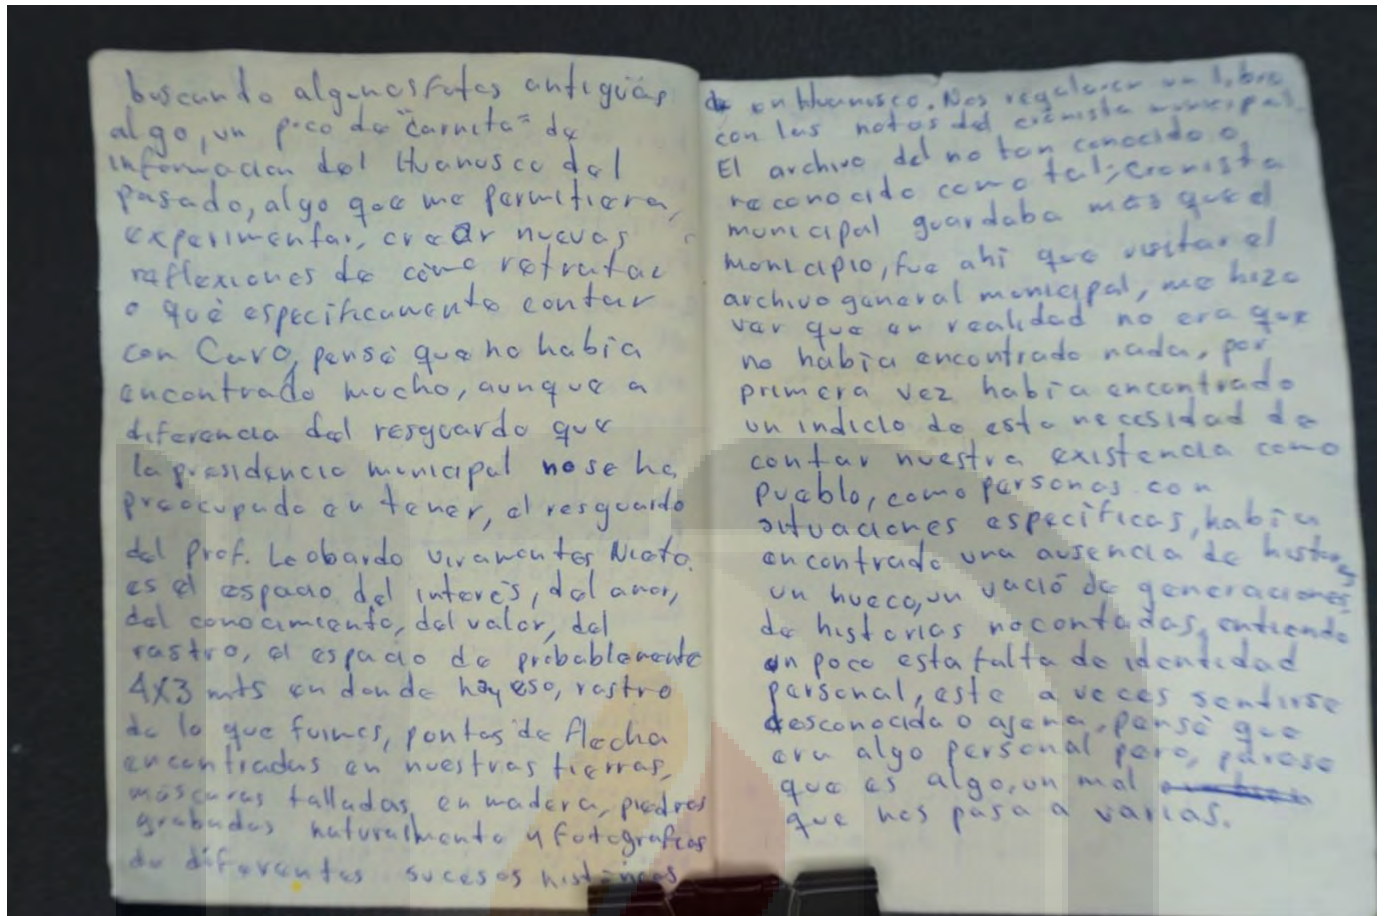 buscando algunas fotos antigüas
algo, un poco de "carnita" de
información del Huanusco del
pasado, algo que me permitiera,
experimentar, crear nuevas
reflexiones de cómo retratar
o qué específicamente contar
con Caro, pensé que no había
encontrado mucho, aunque a
diferencia del resguardo que
la presidencia municipal no se ha
preocupado en tener, el resguardo
del prof. Leobardo Viramontes Nieto.
es el espacio del interés, del amor,
del conocimiento, del valor, del
rastro, el espacio de probablemente
4X3 mts en donde hay eso, rastro
de lo que fuimos, puntas de flecha
encontradas en nuestras tierras,
máscaras talladas en madera, piedras
grabadas naturalmente y fotografías
de diferentes sucesos históricos
en Huanusco. Nos regalaron un libro
con las notas del cronista municipal.
El archivo del no tan conocido o
reconocido como tal; cronista
municipal guardaba más que el
municipio, fue ahí que visitar el
archivo general municipal, me hizo
ver que en realidad no era que
no había encontrado nada, por
primera vez había encontrado
un indicio de esta necesidad de
contar nuestra existencia como
pueblo, como personas con
situaciones específicas, había
encontrado una ausencia de historias
un hueco, un vació de generaciones,
de historias no contadas, entiendo
un poco esta falta de identidad
personal, este a veces sentirse
desconocida o ajena, pensé que
era algo personal pero, parese
que es algo, un mal
que nos pasa a varias.